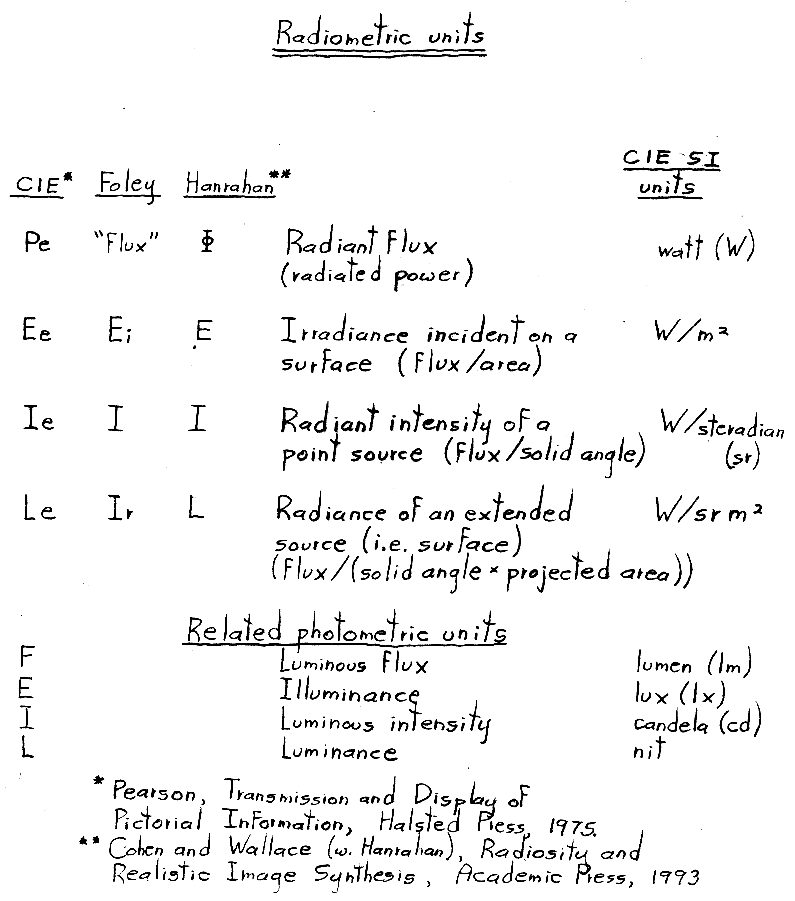 Radiometric units
CIE SI
CIE* Foley Hanrahan** units
Pe "Flux" Φ Radiant Flux watt (W)
(radiated power)
Ee Ei E Irradiance incident on a W/m²
surface (Flux/area)
Ie I I Radiant intensity of a W/steradian
point source (Flux/solid angle) (sr)
Le Ir L Radiance of an extended W/sr m²
source (i.e. surface)
(Flux/(solid angle * projected area))
Related photometric units
F Luminous Flux lumen (lm)
E Illuminance lux (lx)
I Luminous intensity candela (cd)
L Luminance nit
* Pearson, Transmission and Display of
Pictorial Information, Halsted Press, 1975.
** Cohen and Wallace (w. Hanrahan), Radiosity and
Realistic Image Synthesis, Academic Press, 1993